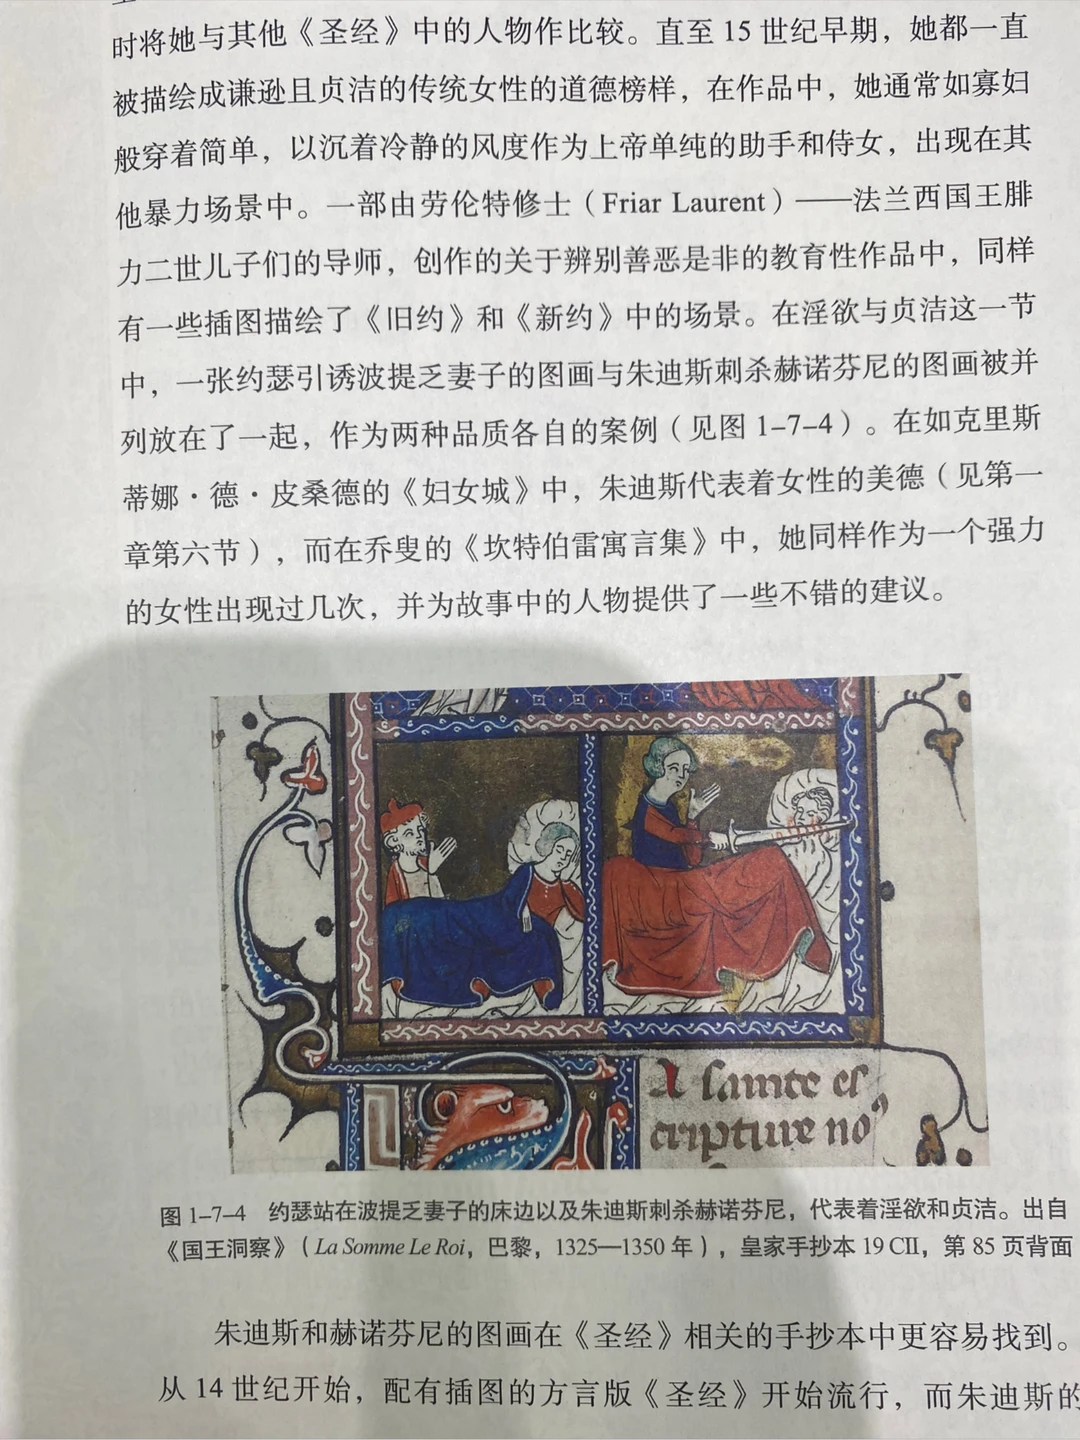 时将她与其他《圣经》中的人物作比较。直至 15 世纪早期，她都一直
被描绘成谦逊且贞洁的传统女性的道德榜样，在作品中，她通常如寡妇
般穿着简单，以沉着冷静的风度作为上帝单纯的助手和侍女，出现在其
他暴力场景中。一部由劳伦特修士（Friar Laurent）——法兰西国王腓
力二世儿子们的导师，创作的关于辨别善恶是非的教育性作品中，同样
有一些插图描绘了《旧约》和《新约》中的场景。在淫欲与贞洁这一节
中，一张约瑟引诱波提乏妻子的图画与朱迪斯刺杀赫诺芬尼的图画被并
列放在了一起，作为两种品质各自的案例（见图 1–7–4）。在如克里斯
蒂娜·德·皮桑德的《妇女城》中，朱迪斯代表着女性的美德（见第一
章第六节），而在乔叟的《坎特伯雷寓言集》中，她同样作为一个强力
的女性出现过几次，并为故事中的人物提供了一些不错的建议。
A sainte es
cripture no
图 1–7–4 约瑟站在波提乏妻子的床边以及朱迪斯刺杀赫诺芬尼，代表着淫欲和贞洁。出自
《国王洞察》（La Somme Le Roi，巴黎，1325—1350 年），皇家手抄本 19 CII，第 85 页背面
朱迪斯和赫诺芬尼的图画在《圣经》相关的手抄本中更容易找到。
从 14 世纪开始，配有插图的方言版《圣经》开始流行，而朱迪斯的